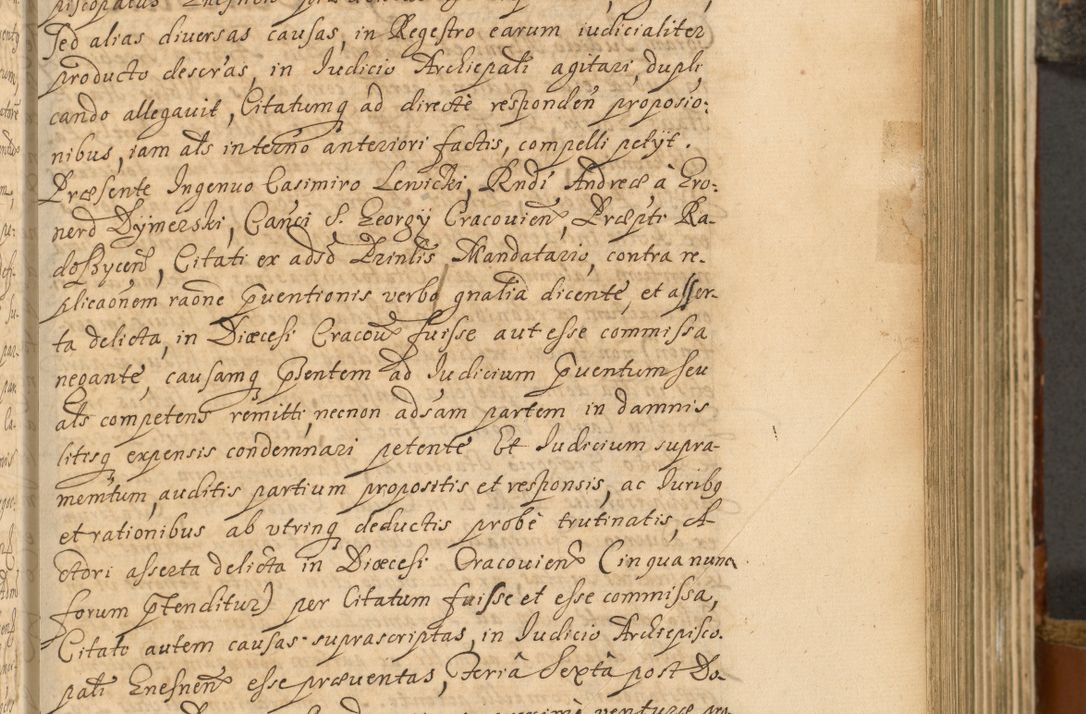 piscopatus Gnesnen
sed alias diversas causas, in Regestro earum iudicialiter
producto descr͞as, in Iudicio Archiepāli agitari, dupli
cando allegavit, Citatumq ad directè responden̄ proposio:
nibus, iam āls in termo anteriori factis, compelli petÿt.
Præsente Ingenuo Casimiro Lewicki, Rndi Andreæ à Gro:
nerd Dÿmerski, Canci S. Georgÿ Cracovien, Præpti Ra
doszycen, Citati ex adso Prinlis Mandatario, contra re:
plicaonem raone pventionis verbo gnalia dicente, et asser:
ta delicta, in Diœcesi Cracov fuisse aut esse commissa
negante, causamq psentem ad Iudicium pventum seu
als competens remitti, necnon adsam partem in damnis
litisq expensis condemnari petente Et Iudicium supra-
memtum, auditis partium propositis et responsis, ac Iuribq
et rationibus ab vtrinq deductis probè trutinatis, A-
ctori asserta delicta in Diœcesi Cracovien (in qua num
forum ptenditur) per Citatum fuisse et esse commissa,
Citato autem causas suprascriptas, in Iudicio Archiepisco.
pali Gnesnen esse præventas, Feriâ Sextâ post Do-
venturæ